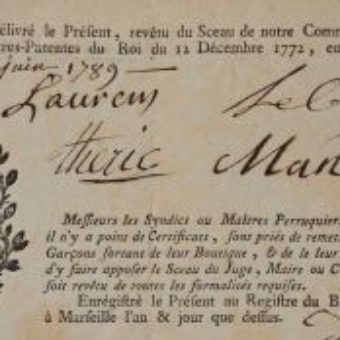 élivré le Présent, revêtu du Sceau de notre Comm
res-Patentes du Roi du 12 Décembre 1772, en
juin 1789
Laurens Le C
theric Man
Messieurs les Syndics ou Maîtres Perruquiers
il n'y a point de Certificats, sont priés de remet
Garçons sortans de leur Boutique, & de le leur
d'y faire apposer le Sceau du Juge, Maire ou C
soit revêtu de toutes les formalités requises.
Enrégistré le Présent au Registre du B
à Marseille l'an & jour que dessus.